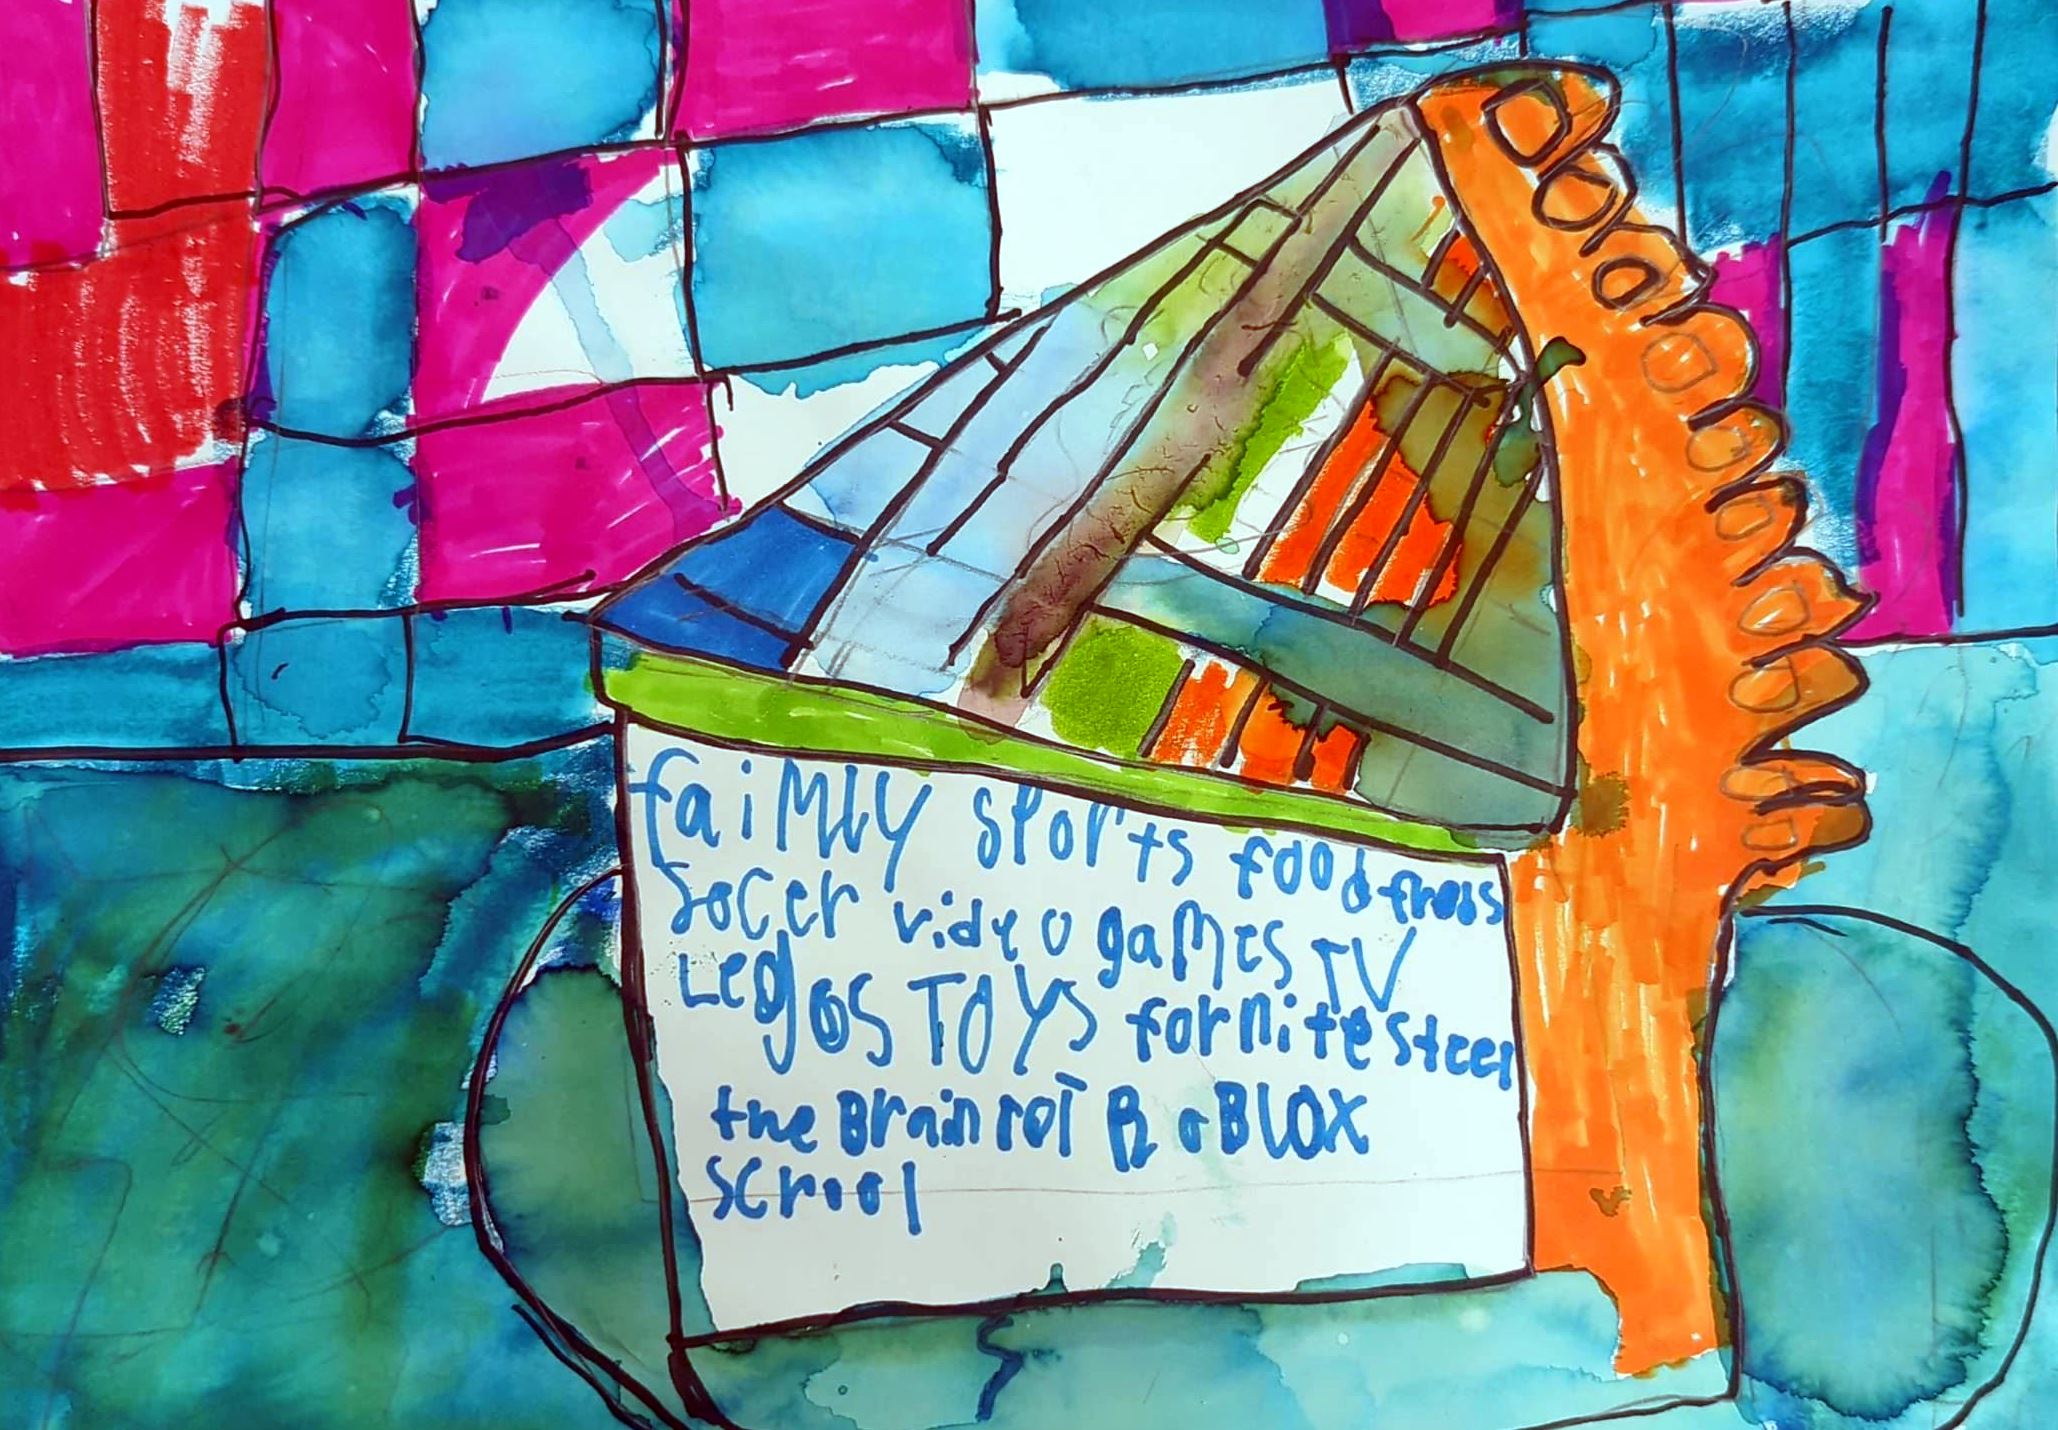 faimly sports food
Socer video games TV
Legos Toys fornite steel
the Brain rot RoBlox